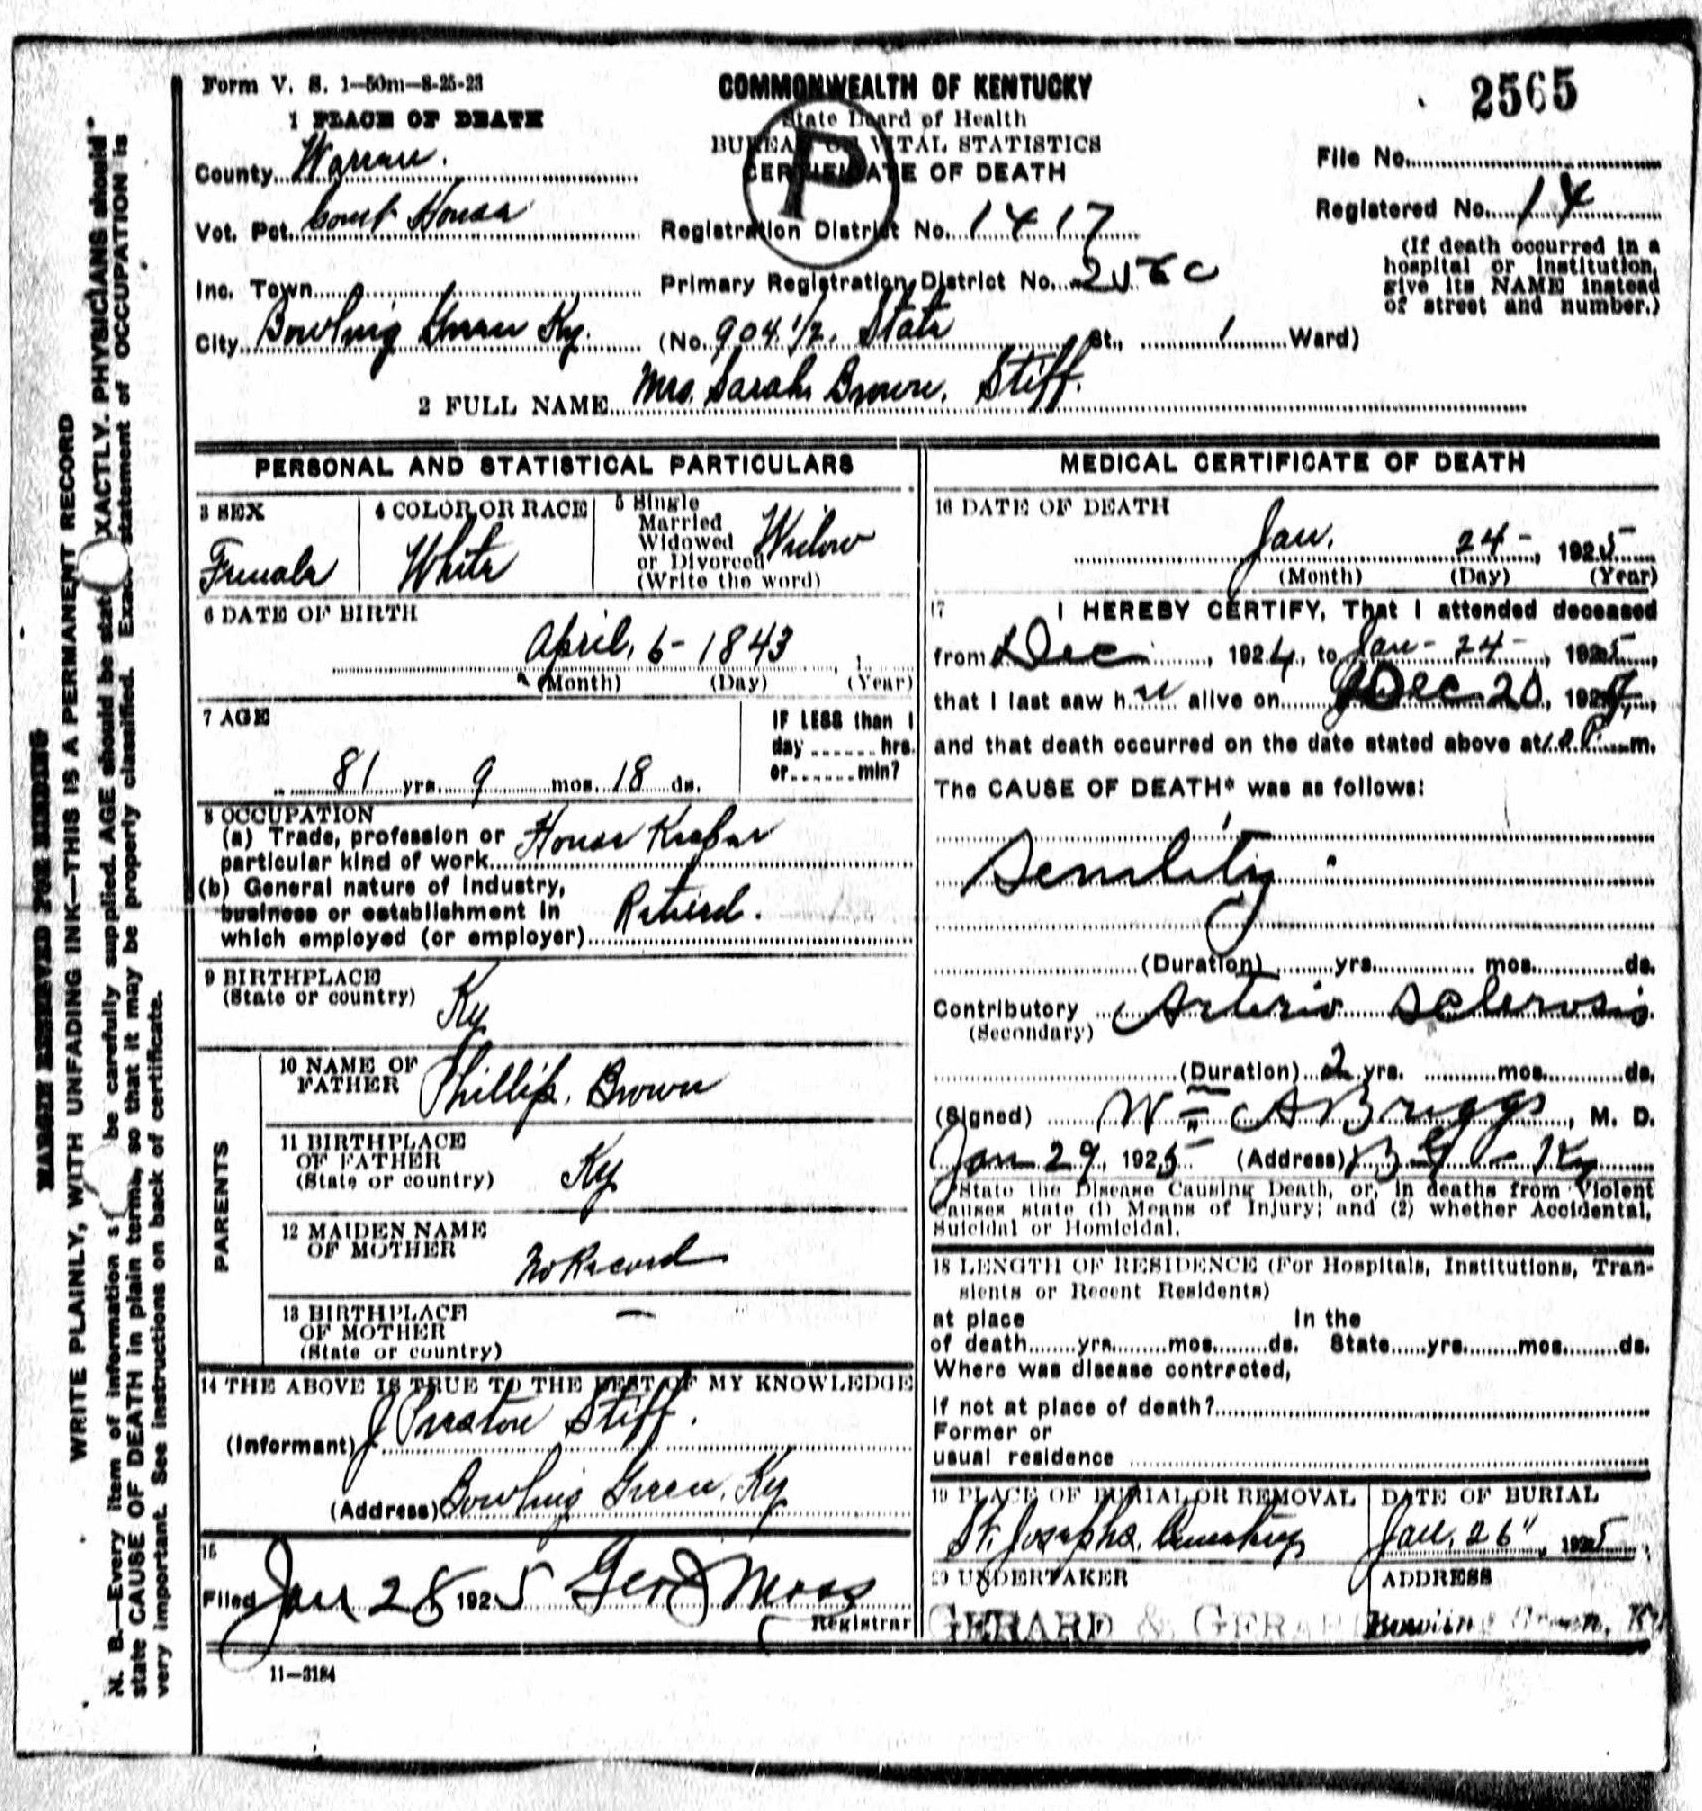 Form V. S. 1—50m—8-25-23
COMMONWEALTH OF KENTUCKY
2565
1 PLACE OF DEATH
State Board of Health
BUREAU OF VITAL STATISTICS
CERTIFICATE OF DEATH
P
File No.
County Warren.
Vot. Pct. Court House
Registration District No. 1417
Registered No. 14
(If death occurred in a
hospital or institution,
give its NAME instead
of street and number.)
Inc. Town
Primary Registration District No.
City Bowling Green Ky.
(No. 904 1/2, State St., 1 Ward)
2 FULL NAME Mrs. Sarah Brown. Stiff.
PERSONAL AND STATISTICAL PARTICULARS
3 SEX
Female
4 COLOR OR RACE
White
5 Single
Married
Widowed
or Divorced
(Write the word)
Widow
6 DATE OF BIRTH
April, 6 - 1843
(Month) (Day) (Year)
7 AGE
81 yrs. 9 mos. 18 ds.
IF LESS than 1
day hrs.
or min?
8 OCCUPATION
(a) Trade, profession or
particular kind of work House Keeper
(b) General nature of industry,
business or establishment in
which employed (or employer) Retired.
9 BIRTHPLACE
(State or country)
Ky
PARENTS
10 NAME OF
FATHER
Phillip. Brown
11 BIRTHPLACE
OF FATHER
(State or country)
Ky
12 MAIDEN NAME
OF MOTHER
No Record
13 BIRTHPLACE
OF MOTHER
(State or country)
—
14 THE ABOVE IS TRUE TO THE BEST OF MY KNOWLEDGE
(Informant) J Preston Stiff.
(Address) Bowling Green, Ky
15
Filed Jan 28 1925 Geo J Moss
Registrar
11—3184
MEDICAL CERTIFICATE OF DEATH
16 DATE OF DEATH
Jan. 24 - , 1925
(Month) (Day) (Year)
17 I HEREBY CERTIFY, That I attended deceased
from Dec , 1924, to Jan - 24 - , 1925,
that I last saw her alive on Dec 20, 192
and that death occurred on the date stated above at m.
The CAUSE OF DEATH* was as follows:
Senility.
(Duration) yrs. mos. ds.
Contributory Arterio Sclerosis
(Secondary)
(Duration) 2 yrs. mos. ds.
(Signed) Wm A Briggs, M. D.
Jan 29, 1925 (Address) B G - Ky
*State the Disease Causing Death, or, in deaths from Violent
Causes state (1) Means of Injury; and (2) whether Accidental,
Suicidal or Homicidal.
18 LENGTH OF RESIDENCE (For Hospitals, Institutions, Tran-
sients or Recent Residents)
at place In the
of death yrs. mos. ds. State yrs. mos. ds.
Where was disease contracted,
if not at place of death?
Former or
usual residence
19 PLACE OF BURIAL OR REMOVAL
St. Josephs. Cemetery
DATE OF BURIAL
Jan. 26", 1925
20 UNDERTAKER
GERARD & GERARD
ADDRESS
Bowling Green, Ky
MARGIN RESERVED FOR BINDING
WRITE PLAINLY, WITH UNFADING INK—THIS IS A PERMANENT RECORD
N. B.—Every item of information should be carefully supplied. AGE should be stated EXACTLY. PHYSICIANS should
state CAUSE OF DEATH in plain terms, so that it may be properly classified. Exact statement of OCCUPATION is
very important. See instructions on back of certificate.